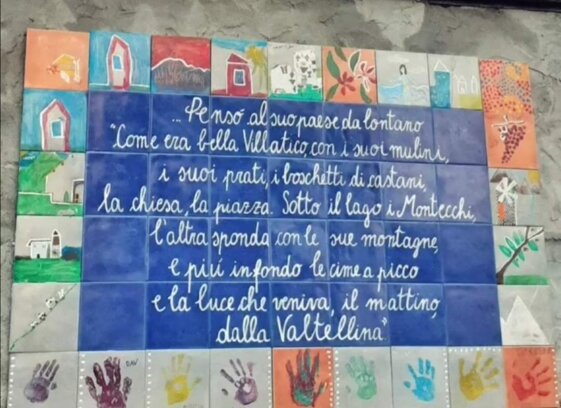 ... Pensò al suo paese da lontano
"Come era bella Villatico, con i suoi mulini,
i suoi prati, i boschetti di castani,
la chiesa, la piazza. Sotto il lago i Montecchi,
l'altra sponda con le sue montagne,
e più in fondo le cime a picco
e la luce che veniva, il mattino,
dalla Valtellina."
DAV